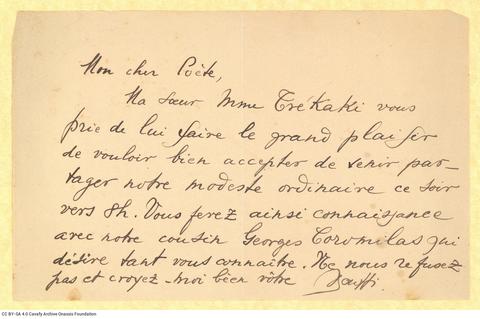 Mon cher Poète,
Ma sœur Mme Trékaki vous
prie de lui faire le grand plaisir
de vouloir bien accepter de venir par-
tager notre modeste ordinaire ce soir
vers 8h. Vous ferez ainsi connaissance
avec notre cousin Georges Coromilas qui
désire tant vous connaître. Ne nous refusez
pas et croyez-moi bien vôtre
CC BY-SA 4.0 Cavafy Archive Onassis Foundation